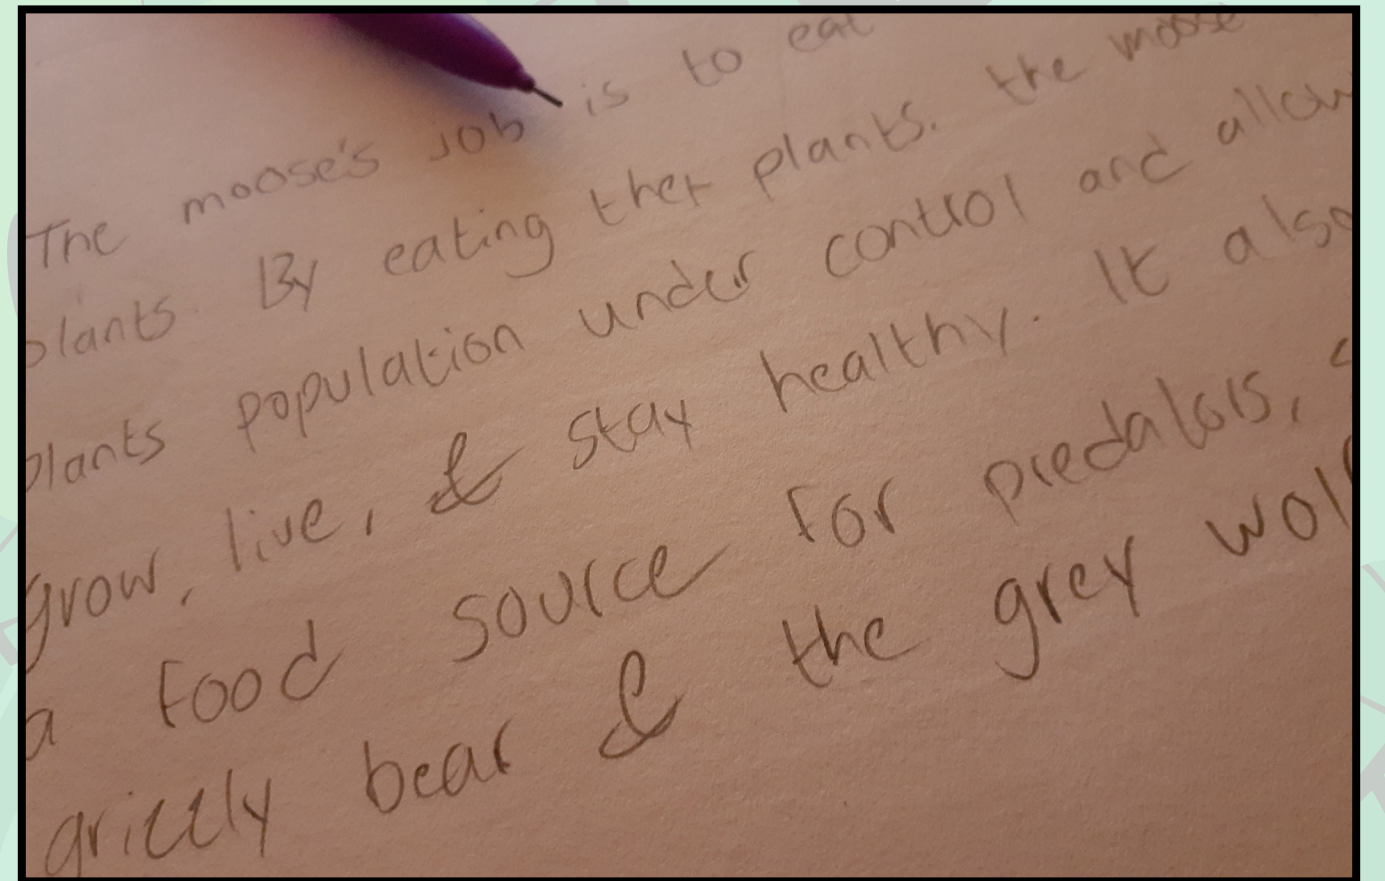 The moose's job is to eat
plants. By eating ther plants. the moose
plants population under control and allow
grow, live, & stay healthy. It also
a food source for predators,
grizzly bear & the grey wolf